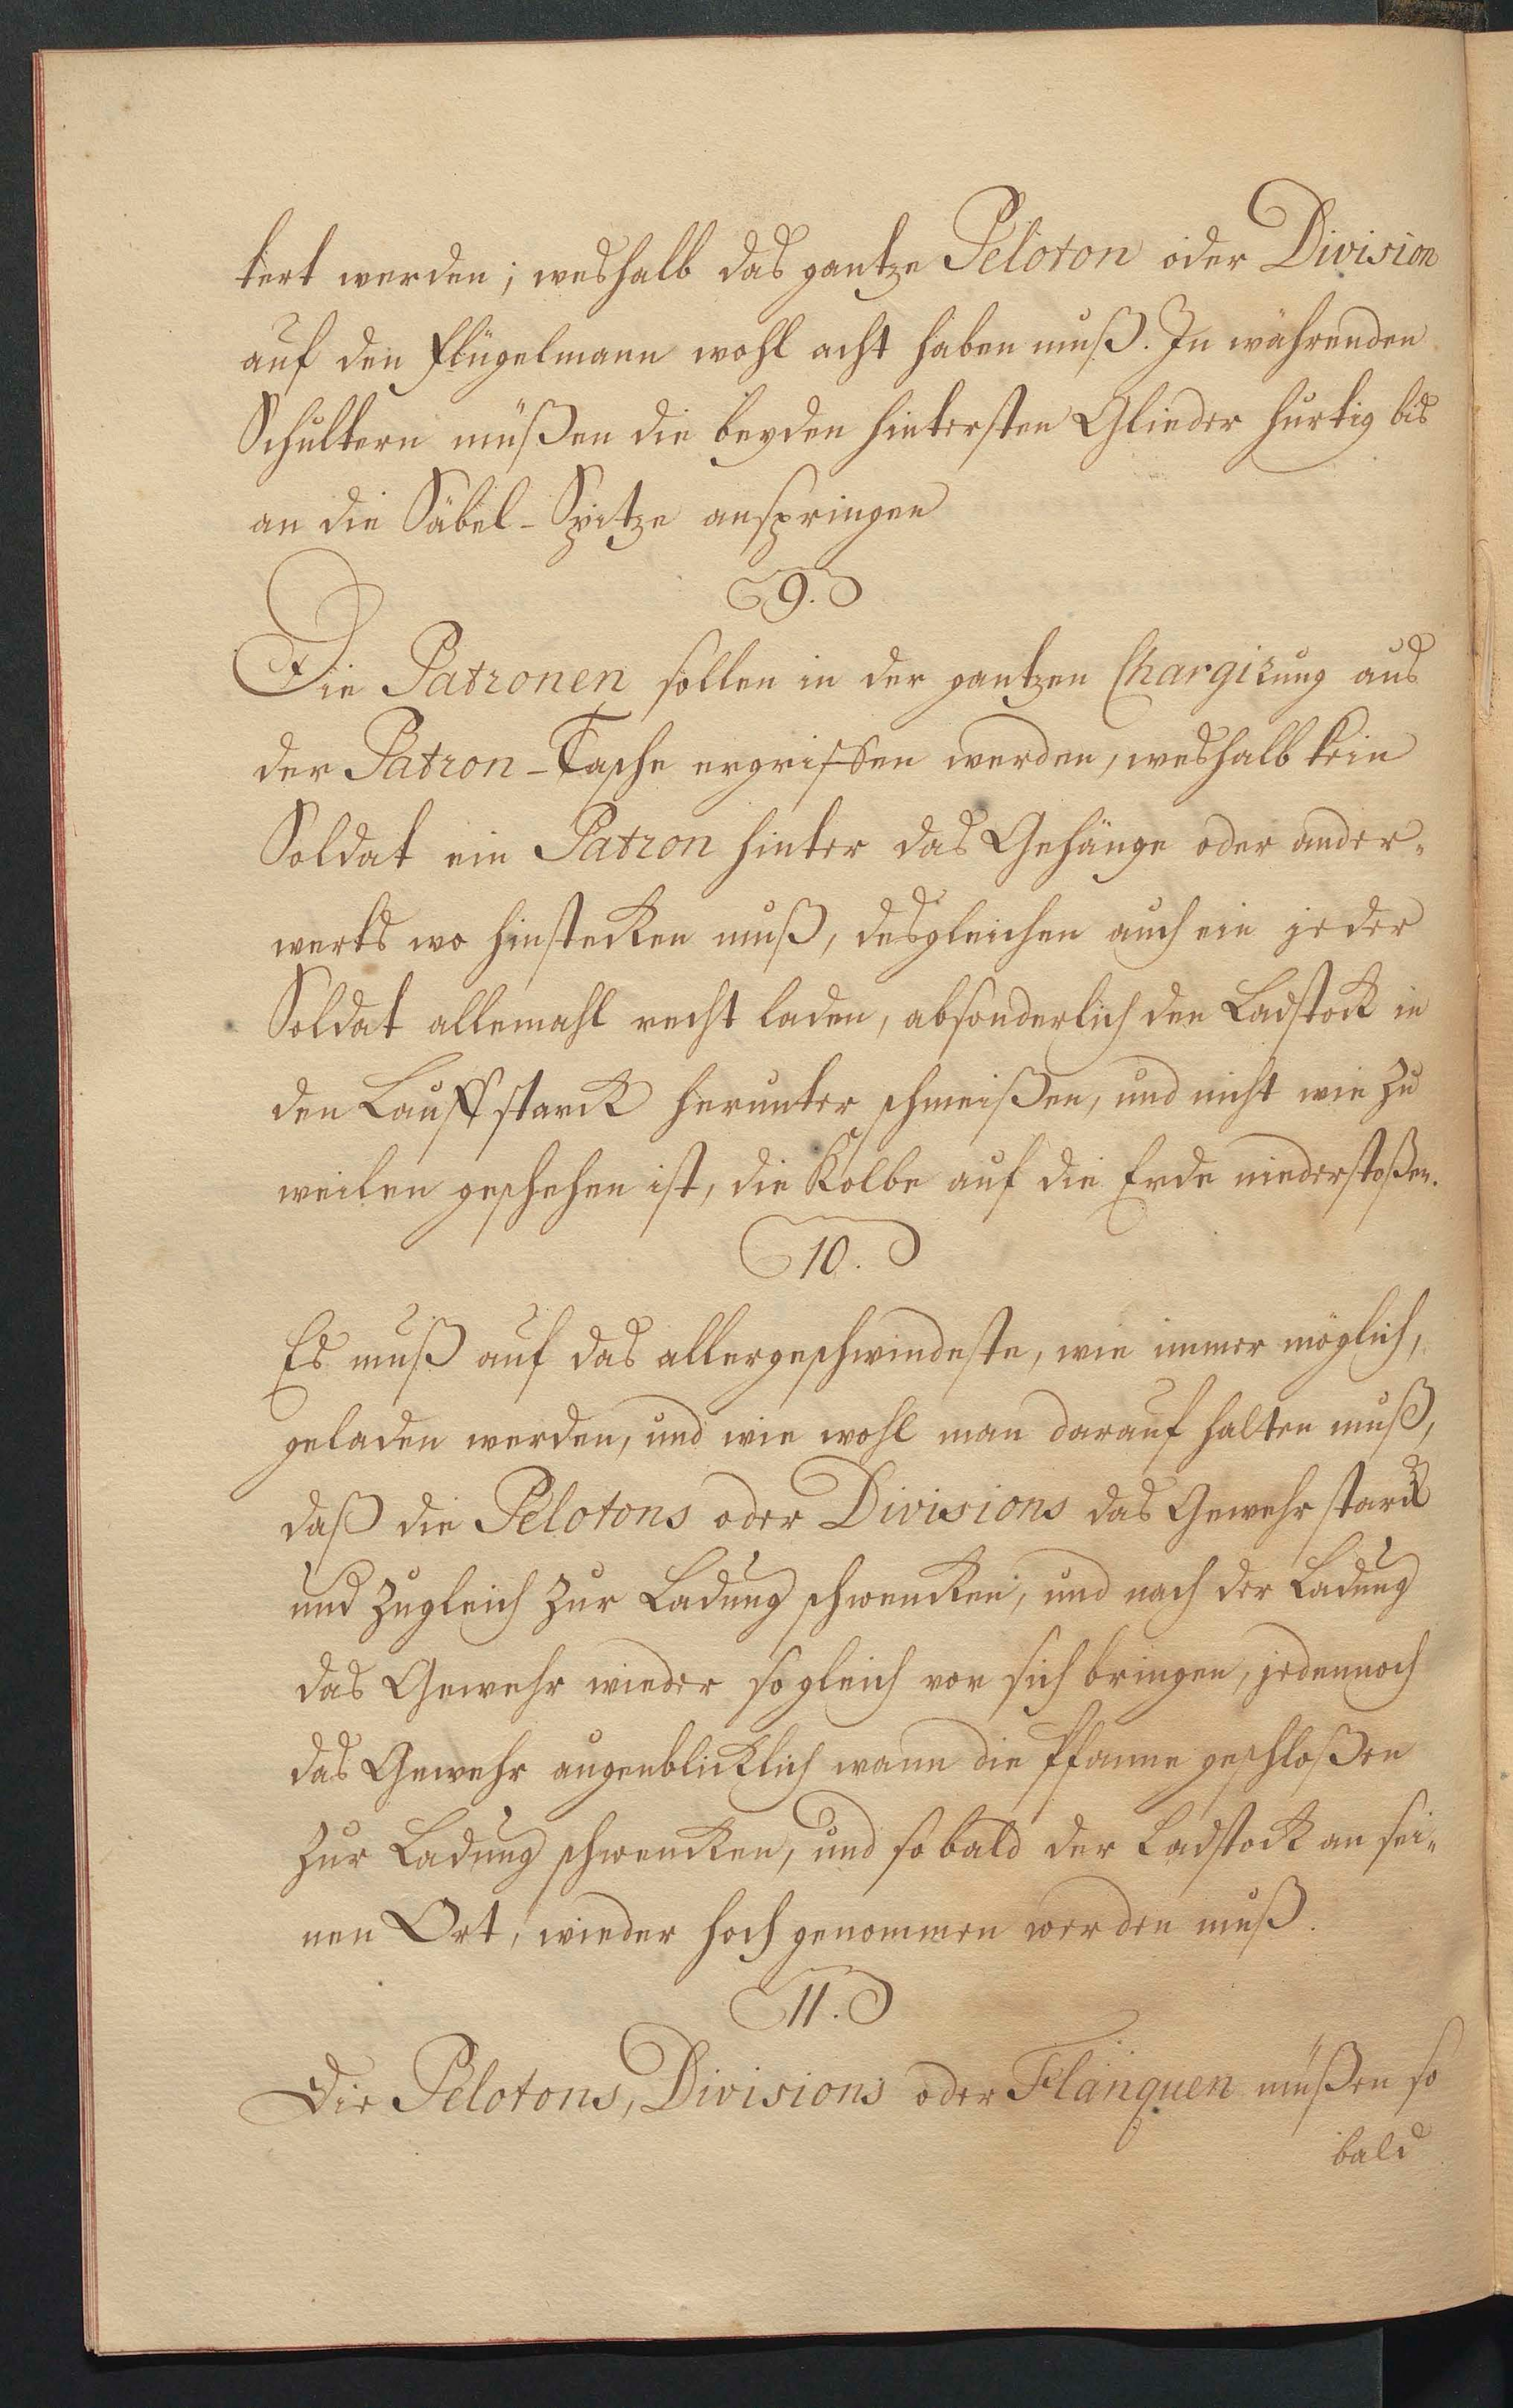 tert werden; weshalb das gantze Peloton oder Division
auf den Flügelmann wohl acht haben muß. In währenden
Schultern müßen die beyden hintersten Glieder hurtig bis
an die Säbel-Spitze anspringen
9.
Die Patronen sollen in der gantzen Chargirung aus
der Patron-Tasche ergriffen werden, weshalb kein
Soldat ein Patron hinter das Gehänge oder ander-
werts wo hinstecken muß, desgleichen auch ein jeder
Soldat allemahl recht laden, absonderlich den Ladstock in
den Lauff starck herunter schmeißen, und nicht wie zu
weilen geschehen ist, die Kolbe auf die Erde niederstoßen.
10.
Es muß auf das allergeschwindeste, wie immer möglich,
geladen werden, und wie wohl man darauf halten muß,
daß die Pelotons oder Divisions das Gewehr starck
und zugleich zur Ladung schwencken, und nach der Ladung
das Gewehr wieder sogleich vor sich bringen, jedennoch
das Gewehr augenblicklich wann die Pfanne geschloßen
zur Ladung schwencken, und so bald der Ladstock an sei-
nen Ort, wieder hoch genommen werden muß.
11.
Die Pelotons, Divisions oder Flanquen müßen so
bald